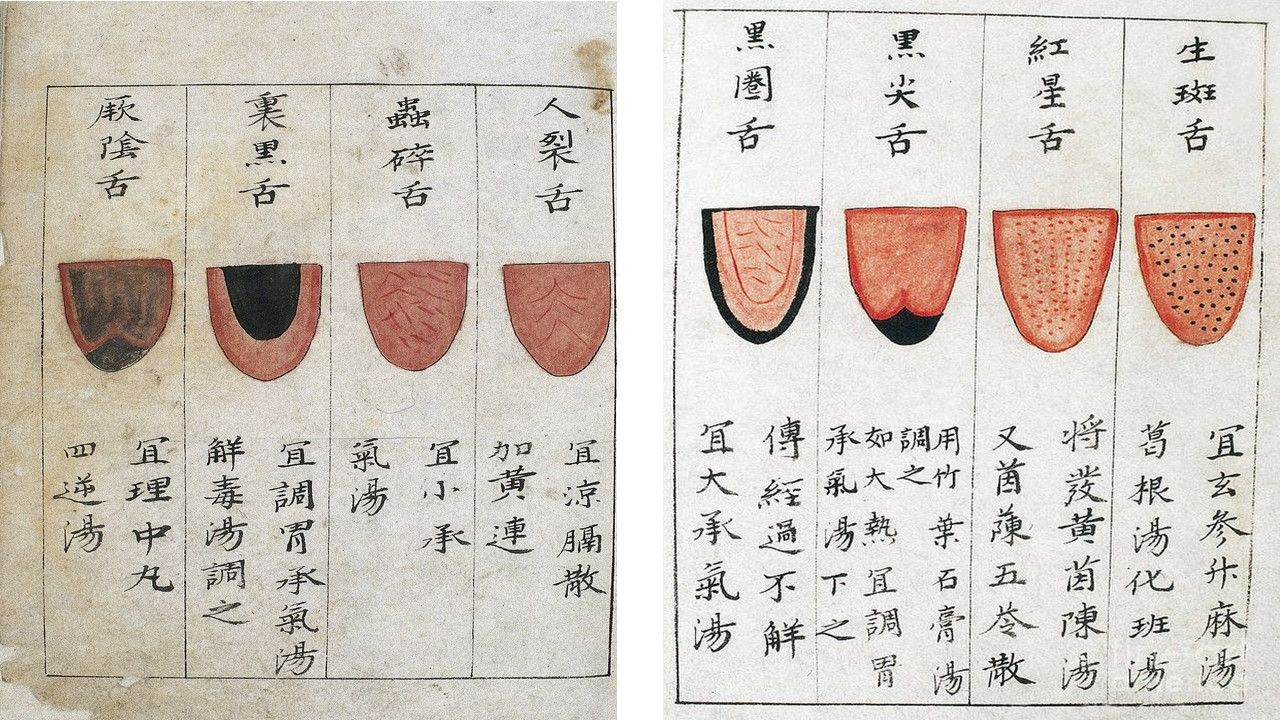 人裂舌
冝涼膈散
加黃連
蟲碎舌
冝小承
氣湯
裏黑舌
冝調胃承氣湯
觧毒湯調之
厥陰舌
冝理中丸
四逆湯
生斑舌
冝玄參升麻湯
葛根湯化班湯
紅星舌
将發黃茵陳湯
又茵蔯五苓散
黑尖舌
用竹葉石膏湯
調之
如大熱冝調胃
承氣湯下之
黑圈舌
傳經過不觧
冝大承氣湯